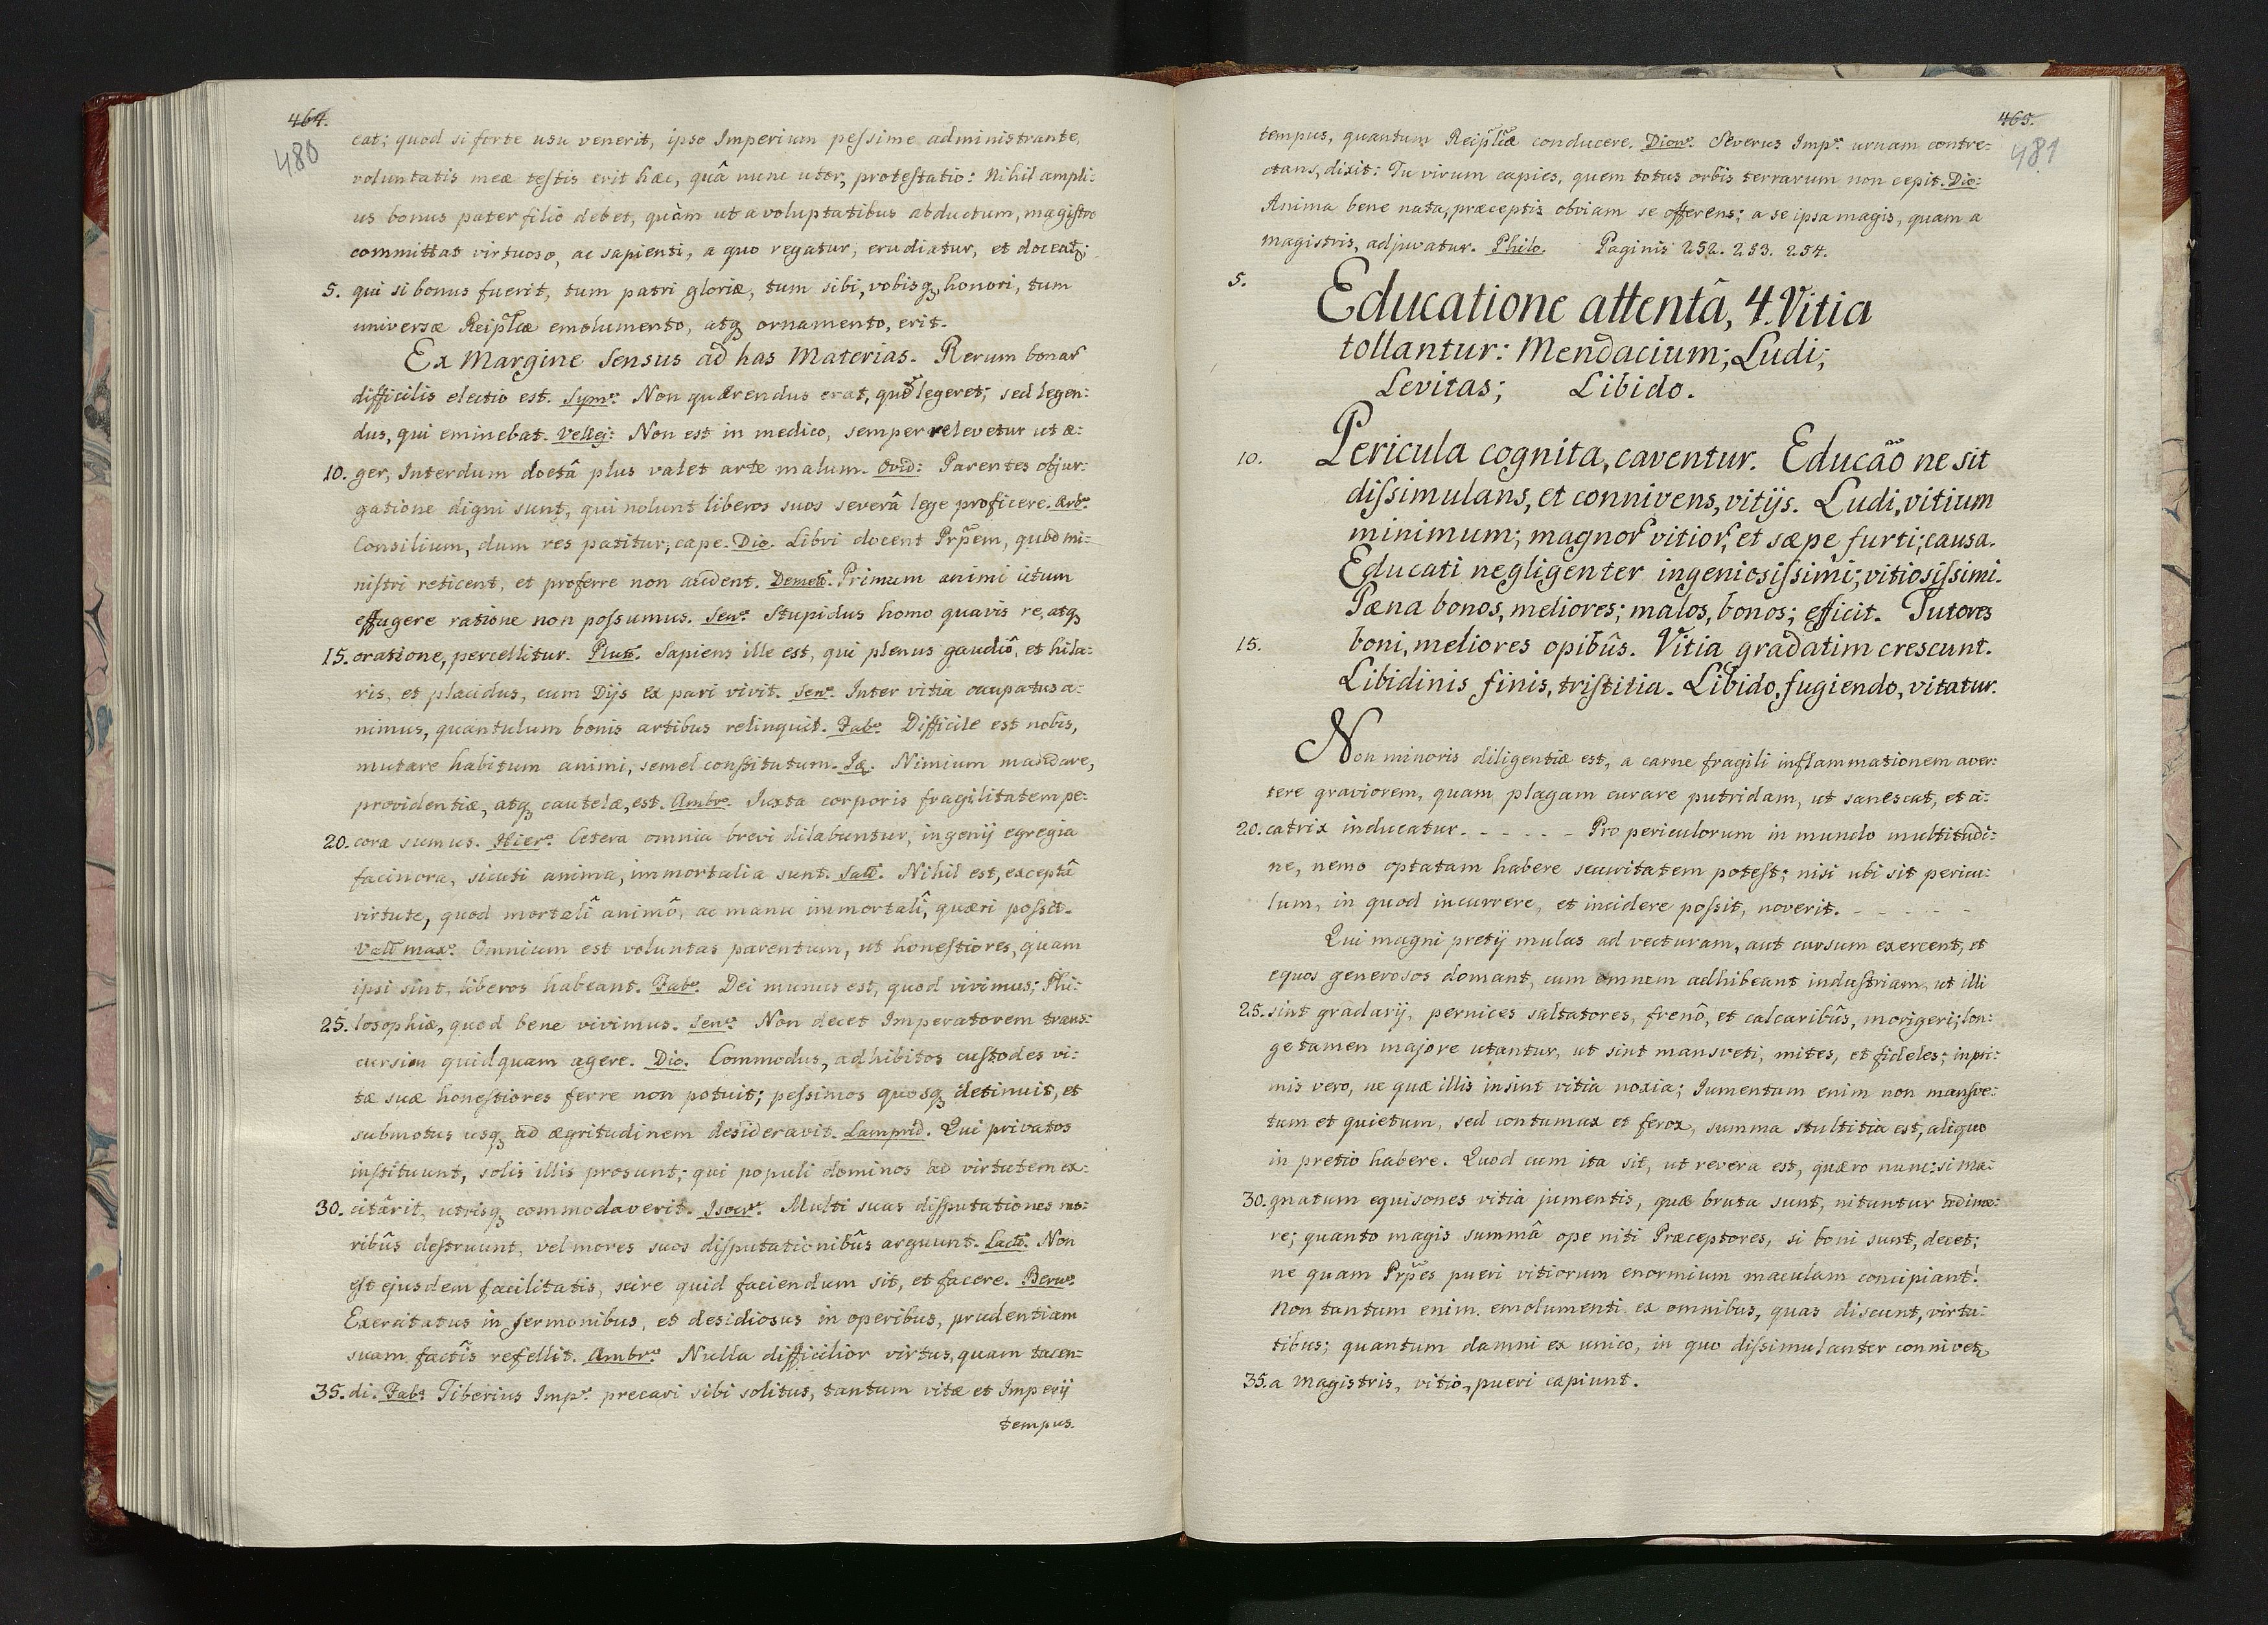 464.
480
eat; quod si forte usu venerit, ipso Imperium peſsime administrante,
voluntatis meæ teſtis erit hæc, quâ nunc utor, proteſtatio: Nihil ampli:
us bonus pater filio debet, quàm ut a voluptatibus abductum, magiſtro
committat virtuoso, ac sapienti, a quo regatur, erudiatur, et doceat;
5. qui si bonus fuerit, tum patri gloriæ, tum sibi, vobisq₃ honori, tum
universæ Reipl̃cæ emolumento, atq₃ ornamento, erit.
Ex Margine Sensus ad has Materias. Rerum bonar̃
difficilis electio est. Sym: Non quærendus erat, quẽ legeret; sed legen:
dus, qui eminebat. Vellej: Non est in medico, semper relevetur ut æ:
10. ger, Interdum doctâ plus valet arte malum. Ovid: Parentes objur:
gatione digni sunt, qui nolunt liberos suos severâ lege proficere. Arb.
Consilium, dum res patitur, cape. Dio. Libri docent Prp̃em, quod mi:
niſtri reticent, et proferre non audent. Demet̃. Primum animi ictum
effugere ratione non poſsumus. Sen. Stupidus homo quavis re, atq₃
15. oratione, percellitur. Plut̃. Sapiens ille est, qui plenus gaudiô, et hila:
ris, et placidus, cum Dijs ex pari vivit. Sen. Inter vitia occupatus a:
nimus, quantulum bonis artibus relinquit. Fab. Difficile est nobis,
mutare habitum animi, semel conſtitutum. Iq. Nimium mandare,
providentiæ, atq₃ cautelæ, est. Ambr. Iuxta corporis fragilitatem pe:
20. cora sumus. Hier. Cetera omnia brevi dilabuntur, ingenij egregia
facinora, sicuti anima, immortalia sunt. Sall̃. Nihil est, exceptâ
virtute, quod mortalî animô, ac manu immortalî, quæri poſsit.
Vall̃ max. Omnium est voluntas parentum, ut honeſtiores, quam
ipsi sint, liberos habeant. Fab. Dei munus est, quod vivimus; Phi:
25. losophiæ, quod bene vivimus. Sen. Non decet Imperatorem trans:
cursim quidquam agere. Dio. Commodus, adhibitos cuſtodes vi:
tæ suæ honeſtiores ferre non potuit; peſsimos quosq₃ detinuit, et
submotus usq₃ ad ægritudinem desideravit. Lamprid. Qui privatos
inſtituunt, solis illis prosunt; qui populi dominos ad virtutem ex:
30. citârit, utrisq₃ commodaverit. Isocr. Multi suas diſputationes mo:
ribûs deſtruunt, vel mores suos diſputationibûs arguunt. Lact̃. Non
eſt ejusdem facilitatis, scire quid faciendum sit, et facere. Bern.
Exercitatus in sermonibus, et desidiosus in operibus, prudentiam
suam factîs refellit. Ambr. Nulla difficilior virtus, quam tacen:
35. di. Fab. Tiberius Imp. precari sibi solitus, tantum vitæ et Imperij
tempus.
465.
481
tempus, quantum Reipl̃cæ conducere. Dion. Severus Imp. urnam contre:
ctans, dixit: Tu virum capies, quem totus orbis terrarum non cepit. Dio:
Anima bene nata, præceptis obviam se offerens; a se ipsa magis, quam a
magistris, adjuvatur. Philo. Paginis 252. 253. 254.
5.
Educatione attentâ, 4. Vitia
tollantur: Mendacium; Ludi;
Levitas; Libido.
10. Pericula cognita, caventur. Educão ne sit
diſsimulans, et connivens, vitijs. Ludi, vitium
minimum; magnor̃ vitior̃, et sæpe furti; causa.
Educati negligenter ingeniosiſsimi; vitiosiſsimi.
Pæna bonos, meliores; malos, bonos; efficit. Tutores
15. boni, meliores opibûs. Vitia gradatim crescunt.
Libidinis finis, triſtitia. Libido, fugiendo, vitatur.
Non minoris diligentiæ est, a carne fragili inflammationem aver:
tere graviorem, quam plagam curare putridam, ut sanescat, et ci:
20. catrix inducatur. - - - - - Pro periculorum in mundo multitudi:
ne, nemo optatam habere securitatem poteſt; nisi ubi sit pericu:
lum, in quod incurrere, et incidere poſsit, noverit. - - - - -
Qui magni pretij mulas ad vecturam, aut cursum exercent, et
equos generosos domant, cum omnem adhibeant induſtriam, ut illi
25. sint gradarij, pernices saltatores, frenô, et calcaribûs, morigeri; lon:
ge tamen majore utantur, ut sint mansveti, mites, et fideles; inpri:
mis vero, ne quæ illis insint vitia noxia; Iumentum enim non mansve:
tum et quietum, sed contumax et ferox, summa stultitia est, aliquo
in pretio habere. Quod cum ita sit, ut revera est, quæro nunc: si ma:
30. gnatum equisones vitia jumentis, quæ bruta sunt, nituntur adime:
re; quanto magis summâ ope niti Præceptores, si boni sunt, decet;
ne quam Prp̃es pueri vitiorum enormium maculam concipiant!
Non tantum enim emolumenti ex omnibus, quas discunt, virtu:
tibus; quantum damni ex unico, in quo diſsimulanter connivetr̃
35. a Magistris, vitio, pueri capiunt.